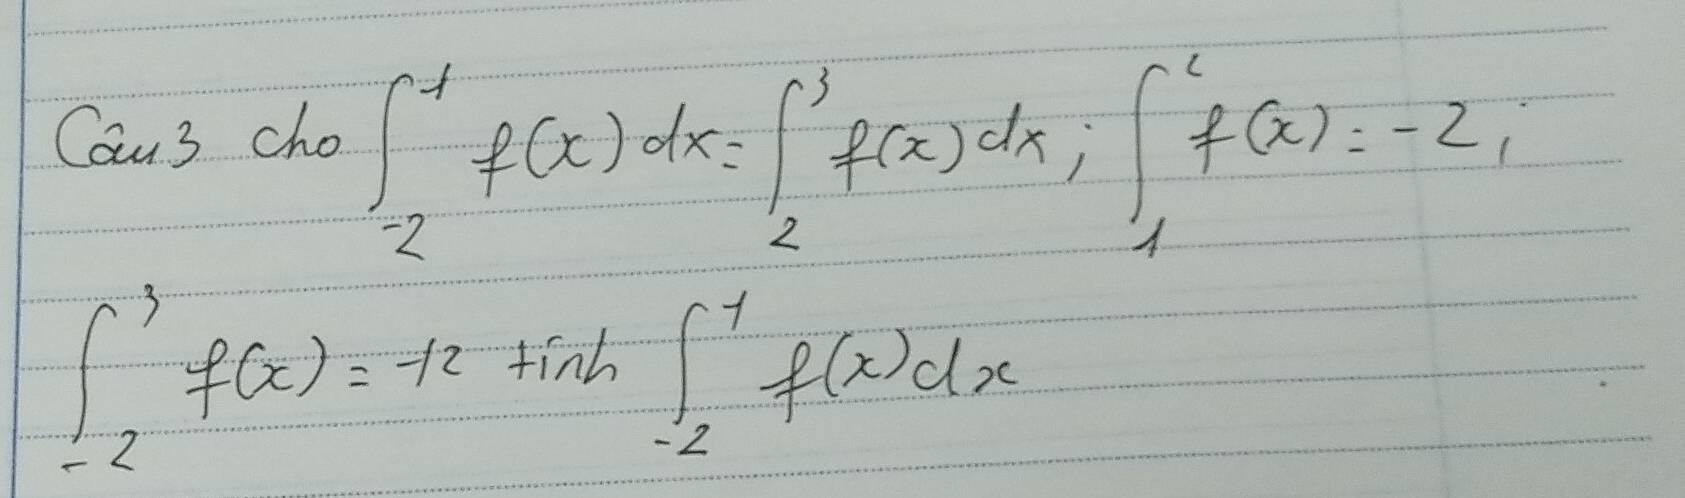 Câu 3 cho ∫_{-2}^{1} f(x) dx = ∫_{2}^{3} f(x) dx ; ∫_{1}^{2} f(x) = -2 ;
∫_{-2}^{3} f(x) = -12 tính ∫_{-2}^{1} f(x) dx